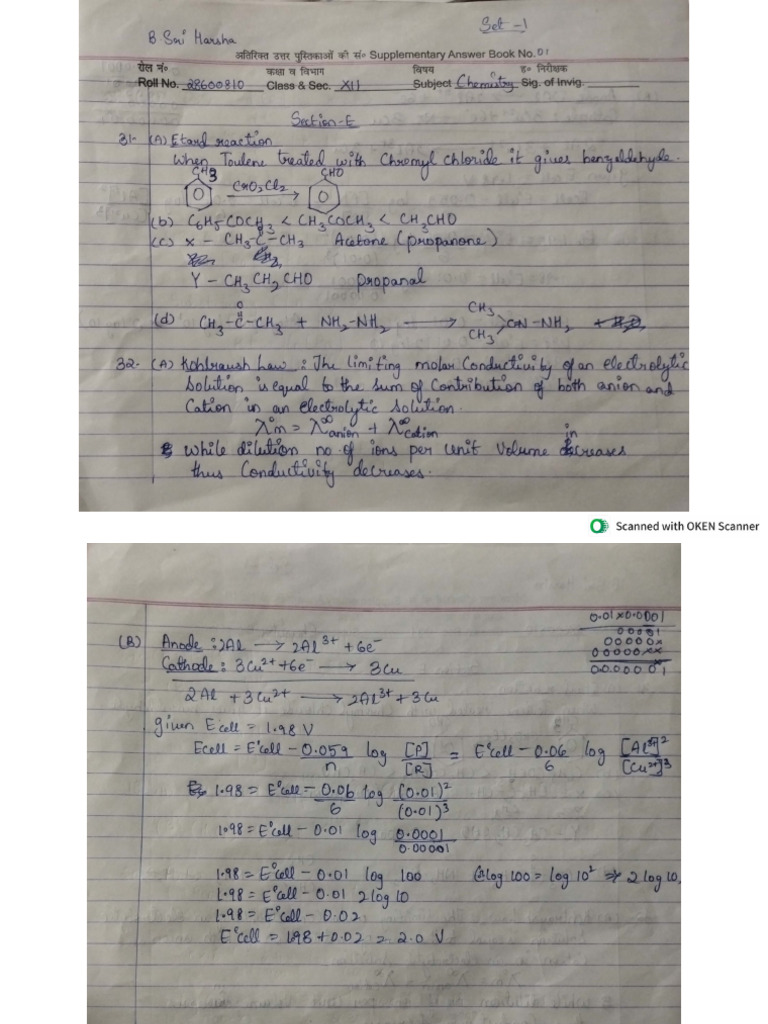 Set-1
B Sri Harsha
अतिरिक्त उत्तर पुस्तिकाओं की सं० Supplementary Answer Book No. 01
रोल नं० कक्षा व विभाग विषय ह० निरीक्षक
Roll No. 28600810 Class & Sec. XII Subject Chemistry Sig. of Invig.
Section-E
31- (A) Etard reaction
When Toulene treated with Chromyl chloride it gives benzaldehyde.
CH3 CHO
CrO2Cl2
(b) C6H5COCH3 < CH3COCH3 < CH3CHO
(c) X - CH3-C-CH3 Acetone (propanone)
O
Y - CH3CH2CHO Propanal
(d) CH3-C-CH3 + NH2-NH2 → CH3 CH3 >C=N-NH2
O
32- (A) Kohlraush Law : The limiting molar Conductivity of an electrolytic
Solution is equal to the sum of Contribution of both anion and
Cation in an electrolytic solution.
λ°m = λ∞anion + λ∞cation
While dilution no. of ions per unit Volume increases
thus Conductivity decreases.
Scanned with OKEN Scanner
0.01×0.0001
00001
00000×
00000××
0.000001
(B) Anode : 2Al → 2Al3+ + 6e-
Cathode : 3Cu2+ + 6e- → 3Cu
2Al + 3Cu2+ → 2Al3+ + 3Cu
given Ecell = 1.98 V
Ecell = E°cell - 0.059/n log [P]/[R] = E°cell - 0.06/6 log [Al3+]2/[Cu2+]3
1.98 = E°cell - 0.06/6 log (0.01)2/(0.01)3
1.98 = E°cell - 0.01 log 0.0001/0.00001
1.98 = E°cell - 0.01 log 100 (∴ log 100 = log 10² ⇒ 2 log 10,
1.98 = E°cell - 0.01 2 log 10
1.98 = E°cell - 0.02
E°cell = 1.98 + 0.02 = 2.0 V